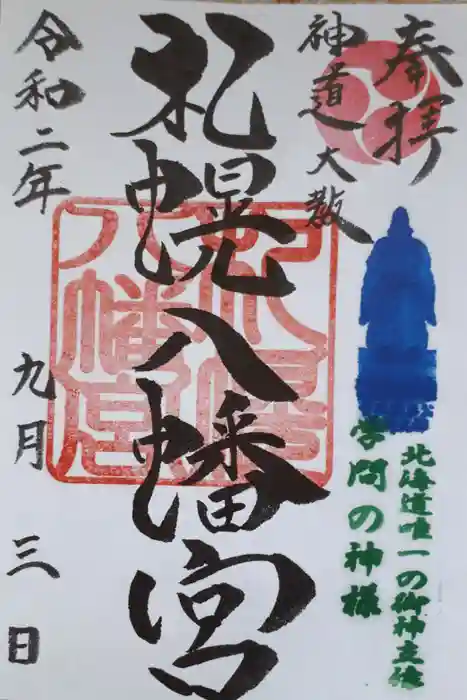 奉拝
神道大教
札幌八幡宮
令和二年
九月三日
札幌
八幡宮
学問の神様
北海道唯一の御神立像